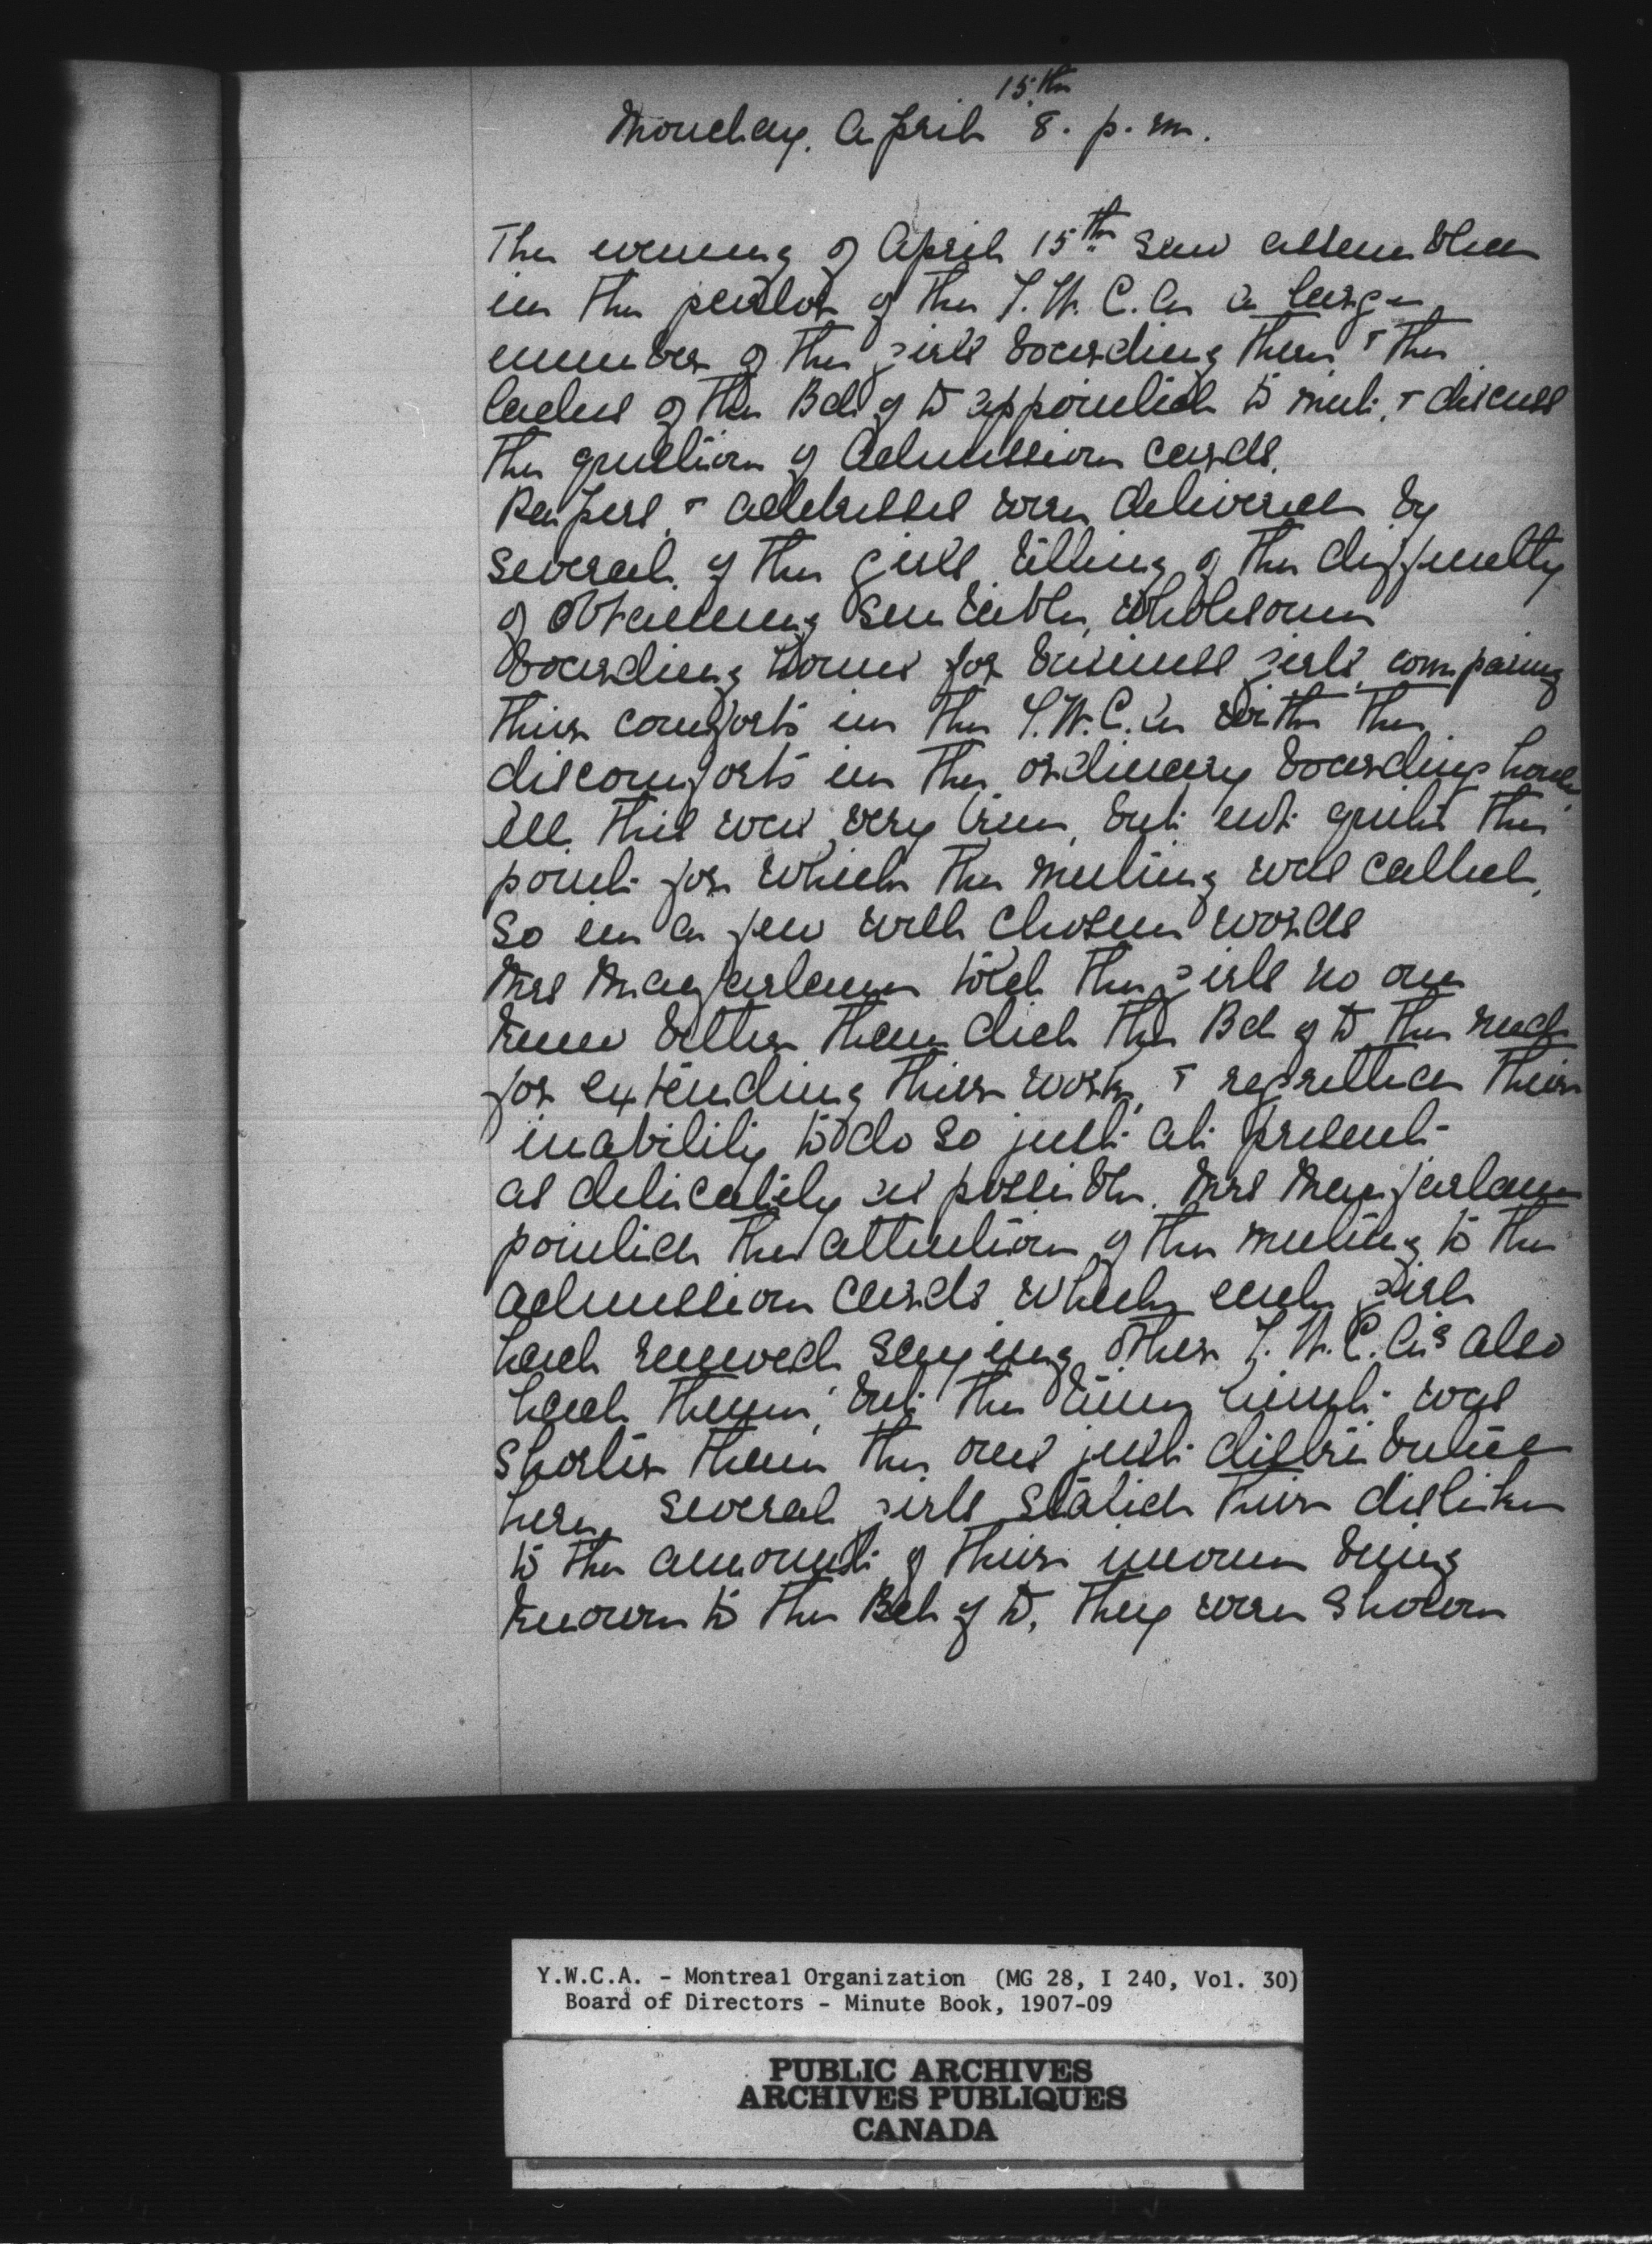 15th
Monday. April 8. p. m.
The evening of April 15th saw assembled
in the parlor of the Y. W. C. A. a large
number of the girls boarding there & the
ladies of the Bd. of D appointed to meet, & discuss
the question of admission cards.
Papers, & addresses were delivered by
several of the girls telling of the difficulty
of obtaining suitable, wholesome
boarding homes for business girls, comparing
their comforts in the Y. W. C. A. with the
discomforts in the ordinary boarding house.
All this was very true, but not quite the
point for which the meeting was called,
so in a few well chosen words
Mrs Macfarlane told the girls no one
knew better than did the Bd of D the need
for extending their work, & regretted their
inability to do so just at present-
as delicately as possible. Mrs Macfarlane
pointed the attention of the meeting to the
admission cards which each girl
had received saying other Y. W. C. A's also
had them, but the time limit was
shorter than the ones just distributed
here, several girls stated their dislike
to the amount of their income being
known to the Bd of D, they were shown
Y.W.C.A. - Montreal Organization (MG 28, I 240, Vol. 30)
Board of Directors - Minute Book, 1907-09
PUBLIC ARCHIVES
ARCHIVES PUBLIQUES
CANADA